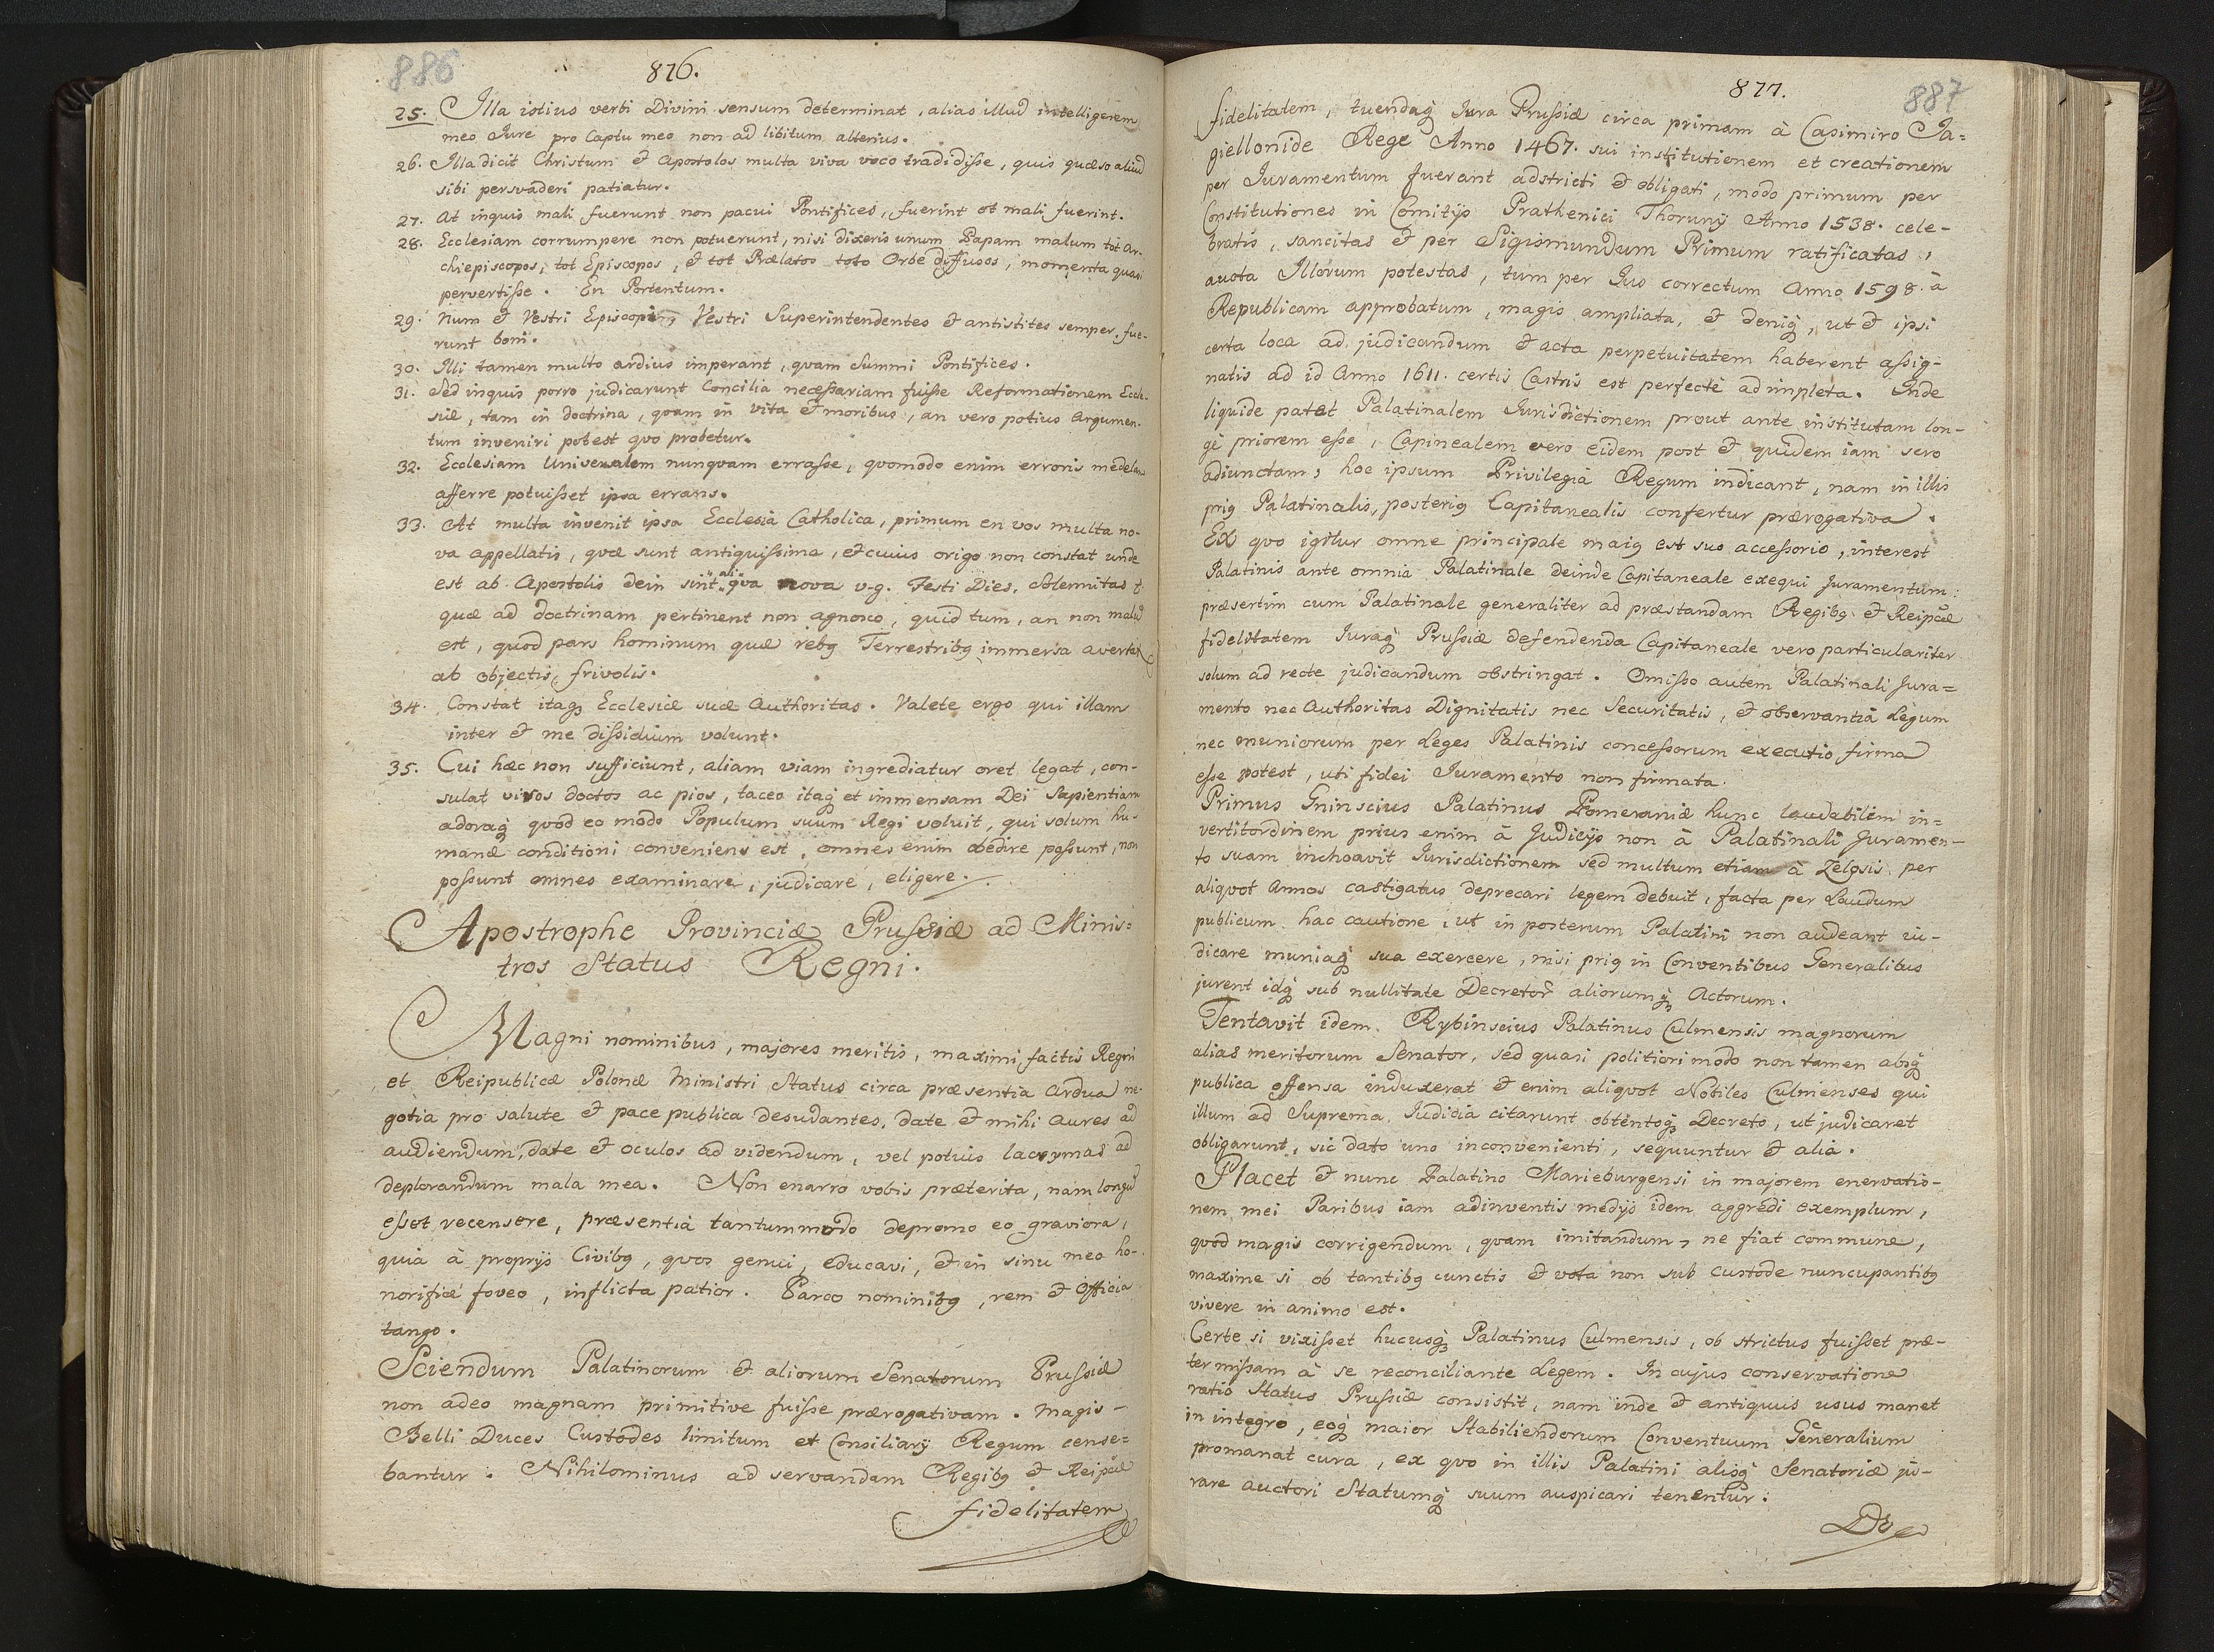 886
876.
25. Illa istius verbi Divini sensum determinat, alias illud intelligerem
meo Jure pro Captu meo non ad libitum alterius.
26. Illa dicit Christum et Apostolos multa viva voce tradidisse, quis quæso aliud
sibi persvaderi patiatur.
27. At inquis mali fuerunt non pauci Pontifices, fuerint et mali fuerint.
28. Ecclesiam corrumpere non potuerunt, nisi dixeris unum Papam malum tot Ar-
chiepiscopos, tot Episcopos, et tot Prælatos toto Orbe diffusos, momenta quasi
pervertisse. En Portentum.
29. Num et Vestri Episcopi, Vestri Superintendentes et antistites semper fue-
runt boni.
30. Illi tamen multo ardius imperant, quam Summi Pontifices.
31. Sed inquis porro judicarunt Concilia necessariam fuisse Reformationem Eccle-
siæ, tam in doctrina, quam in vita et moribus, an vero potius Argumen-
tum inveniri potest quo probetur.
32. Ecclesiam Universalem nunquam errasse, quomodo enim erroris medelam
afferre potuisset ipsa errans.
33. At multa invenit ipsa Ecclesia Catholica, primum en vos multa no-
va appellatis, quæ sunt antiquissima, et cuius origo non constat unde
est ab Apostolis dein sint ali qva nova v.g. Festi Dies. Solemnitas t
quæ ad doctrinam pertinent non agnosco, quid tum, an non malu
est, quod pars hominum quæ rebg Terrestribg immersa avertat
ab objectis frivolis.
34. Constat itaq Ecclesiæ suæ Authoritas. Valete ergo qui illam
inter et me dissidium volunt.
35. Cui hæc non sufficiunt, aliam viam ingrediatur oret legat, con-
sulat viros doctos ac pios, taceo itaq et immensam Dei Sapientiam
adoraq quod eo modo Populum suum Regi voluit, qui solum hu-
manæ conditioni conveniens est, omnes enim obedire possunt, non
possunt omnes examinare, judicare, eligere.
Apostrophe Provinciæ Prussiæ ad Minis=
tros Status Regni.
Magni nominibus, majores meritis, maximi factis Regni
et Reipublicæ Polonæ Ministri Status circa præsentia ardua ne-
gotia pro salute et pace publica desudantes, date et mihi Aures ad
audiendum, date et oculos ad videndum, vel potius lacrymas ad
deplorandum mala mea. Non enarro vobis præterita, nam longu
esset recensere, præsentia tantummodo depromo eo graviora,
quia à propriis Civibg, quos genui, educavi, et in sinu meo ho-
norificè foveo, inflicta patior. Parco nominibg, rem et Officia
tango.
Sciendum Palatinorum et aliorum Senatorum Prussiæ
non adeo magnam primitive fuisse prærogativam. Magis-
Belli Duces Custodes limitum et Consiliarij Regum cense=
bantur. Nihilominus ad servandam Regibg et Reipcæ
fidelitatem
877.
887
fidelitatem, tuendaq Jura Prussiæ circa primam à Casimiro Ja=
giellonide Rege Anno 1467. sui institutionem et creationem
per Juramentum fuerant adstricti et obligati, modo primum per
Constitutiones in Comitijs Pruthenici Thorunij Anno 1538. cele-
bratis, sancitas et per Sigismundum Primum ratificatas,
aucta Illorum potestas, tum per Jus correctum Anno 1598. à
Republicam approbatum, magis ampliata, et deniq, ut et ipsi
certa loca ad judicandum et acta perpetuitatem haberent assig-
natis ad id Anno 1611. certis Castris est perfectè adimpleta. Inde
liquide patet Palatinalem Jurisdictionem prout ante institutam lon-
gè priorem esse, Capinealem vero eidem post et quidem iam sero
adiunctam, hoc ipsum Privilegia Regum indicant, nam in illis
prig Palatinalis, posterig Capitanealis confertur prærogativa.
Ex quo igitur omne principale maig est suo accessorio, interest
Palatinis ante omnia Palatinale deinde Capitaneale exequi Juramentum:
præsertim cum Palatinale generaliter ad præstandam Regibg et Reipcæ
fidelitatem Juraq Prussiæ defendenda Capitaneale vero particulariter
solum ad recte judicandum obstringat. Omisso autem Palatinali Jura=
mento nec Authoritas Dignitatis nec Securitatis, et observantia Legum
nec muniorum per Leges Palatinis concessorum executio firma
esse potest, uti fidei Juramento non firmata.
Primus Gninscius Palatinus Pomeraniæ hunc laudabilem in=
vertit ordinem prius enim à Judicijs non à Palatinali Juramen-
to suam inchoavit Jurisdictionem sed multum etiam à Zelosis per
aliquot Annos castigatus deprecari legem debuit, facta per Laudum
publicum hac cautione, ut in posterum Palatini non audeant iu-
dicare muniaq sua exercere, nisi prig in Conventibus Generalibus
jurent idq sub nullitate Decretor aliorumq Actorum.
Tentavit idem Rybinscius Palatinus Culmensis magnorum
alias meritorum Senator, sed quasi politiori modo non tamen absq
publica offensa induxerat et enim aliquot Nobiles Culmenses qui
illum ad Suprema Judicia citarunt obtentoq Decreto, ut judicaret
obligarunt, sic dato uno inconvenienti, sequuntur et alia.
Placet et nunc Palatino Marieburgensi in majorem enervatio-
nem mei Paribus iam adinventis medijs idem aggredi exemplum,
quod magis corrigendum, quam imitandum, ne fiat commune,
maxime si ob tantibg cunctis et vota non sub custode nuncupantibg
vivere in animo est.
Certe si vixisset hucusq Palatinus Culmensis, ob strictus fuisset præ-
termissam à se reconciliante Legem. In cujus conservatione
ratio Status Prussiæ consistit, nam inde et antiquus usus manet
in integro, eoq maior Stabiliendorum Conventuum Generalium
promanat cura, ex quo in illis Palatini aliiq Senatoriæ ju-
rare auctori Statumq suum auspicari tenentur.